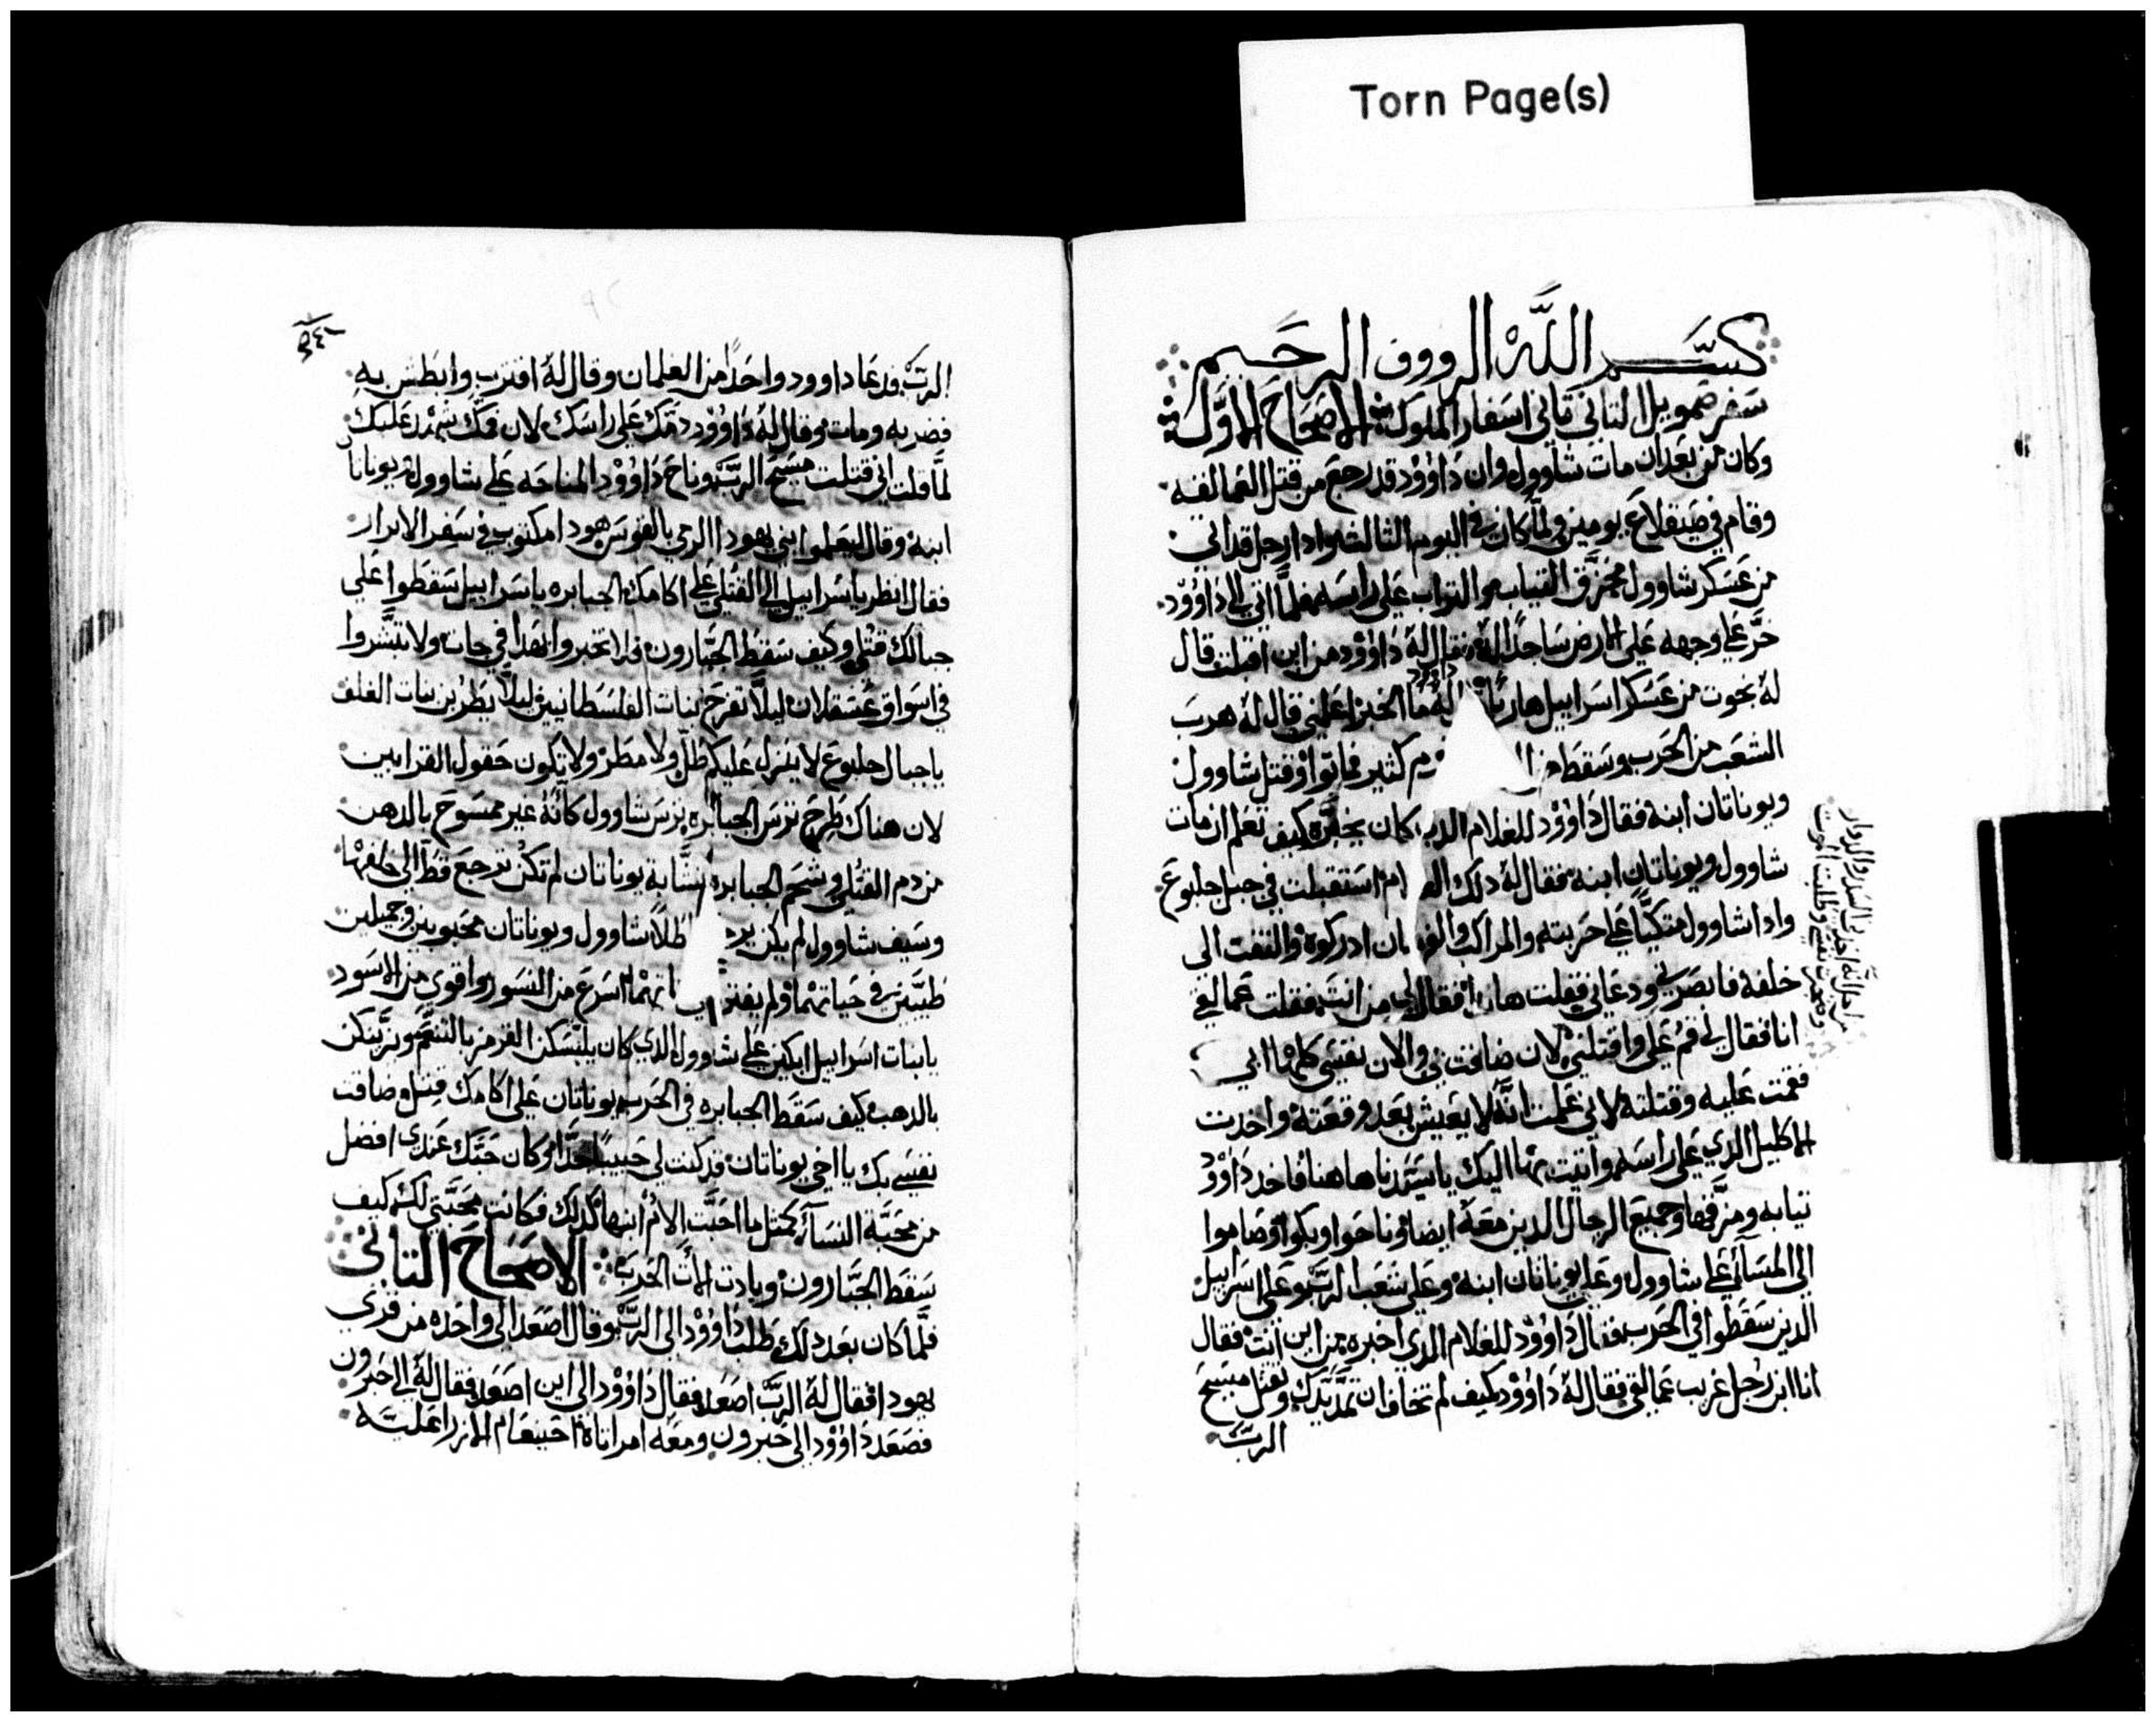 Torn Page(s)
بسم الله الرووف الرحيم
سفر صمويل الثاني ثاني اسفار الملوك الاصحاح الاول
وكان من بعد ان مات شاوول وان داوود قد رجع من قتل العمالقه
وقام في صيقلاغ يومين ولما كان في اليوم الثالث وادا رجل قد اتي
من عسكر شاوول ممزق التياب والتراب علي راسه فلما اتي الي داوود
خر علي وجهه علي الارض ساجدا له فقال له داوود من اين اقبلت قال
له نجوت من عسكر اسراييل هاربا داوود له ما الخبر اعلمني قال له هرب
الشعب من الحرب وسقط من كثير فماتوا وقتل شاوول
ويوناتان ابنه فقال داوود للغلام الدي كان يخبره كيف تعلم ان مات
شاوول ويوناتان ابنه فقال له دلك استقبلت في جبل جلبوع
وادا شاوول متكيا علي حربته والمراكب ادركوه والتفت الي
خلفه فابصرني ودعاني فقلت هانا فقال لي من انت فقلت عماليقي
انا فقال لي قم علي واقتلني لان ضاقت بي والان نفسي كلها الي
فقمت عليه وقتلته لاني علمت انه لا يعيش بعد وقعته واخدت
الاكليل الدي علي راسه واتيت بها اليك يا سيدنا هاهنا فاخد داوود
تيابه ومزقها وجميع الرجال الدين معه ايضا وناحوا وبكوا وصاموا
الي المسا علي شاوول وعلي يوناتان ابنه وعلي شعب الرب وعلي اسراييل
الدين سقطوا في الحرب فقال داوود للغلام الدي اخبره من اين انت فقال
انا ابن رجل غريب عمالقي فقال له داوود كيف لم تخاف ان تمد يدك وتقتل مسيح
الرب
الرب فدعا داوود واحدا من الغلمان وقال له اقترب وابطش به
فضربه ومات وقال له داوود دمك علي راسك لان فمك شهد عليك
لما قلت اني قتلت مسيح الرب وناح داوود المناحه علي شاوول ويوناتان
ابنه وقال ليعلموا بني يهودا الرمي بالقوس هودا مكتوب في سفر الابرار
فقال انظر ياسراييل الي القتلي علي اكامك الجبابره ياسراييل سقطوا علي
جبالك قتلي وكيف سقط الجبارون فلا تخبروا بهدا في جات ولا تبشروا
في اسواق عسقلان ليلا تفرح بنات الفلسطانيين ليلا يطربن بنات الغلف
ياجبال جلبوع لا ينزل عليكم طل ولا مطر ولا تكون حقول القرابين
لان هناك طرح ترس الجبابره ترس شاوول كانه غير ممسوح بالدهن
من دم القتلي وشحم الجبابره نشابة يوناتان لم تكن ترجع قط الي خلفها
وسيف شاوول لم يكن شاوول ويوناتان محبوبين وجميلين
طيبين في حياتهما ولم اسرع من النسور واقوي من الاسود
يابنات اسراييل ابكين علي شاوول الدي كان يلبسكن القرمز بالتنعم ويزينكن
بالدهب كيف سقط الجبابره في الحرب يوناتان علي اكامك قتل وضاقت
نفسي بك يا اخي يوناتان قد كنت لي حبيبا جدا وكان حبك عندي افضل
من محبة النسا كمتل ما احبت الام ابنها كدلك فكانت محبتي لك كيف
سقط الجبارون وبادت الات الحرب الاصحاح التاني
فلما كان بعد دلك طلب داوود الي الرب وقال اصعد الي واحده من قري
يهودا فقال له الرب اصعد فقال داوود الي اين اصعد فقال له الي حبرون
فصعد داوود الي حبرون ومعه امراتاه اخينعام الازراعليه